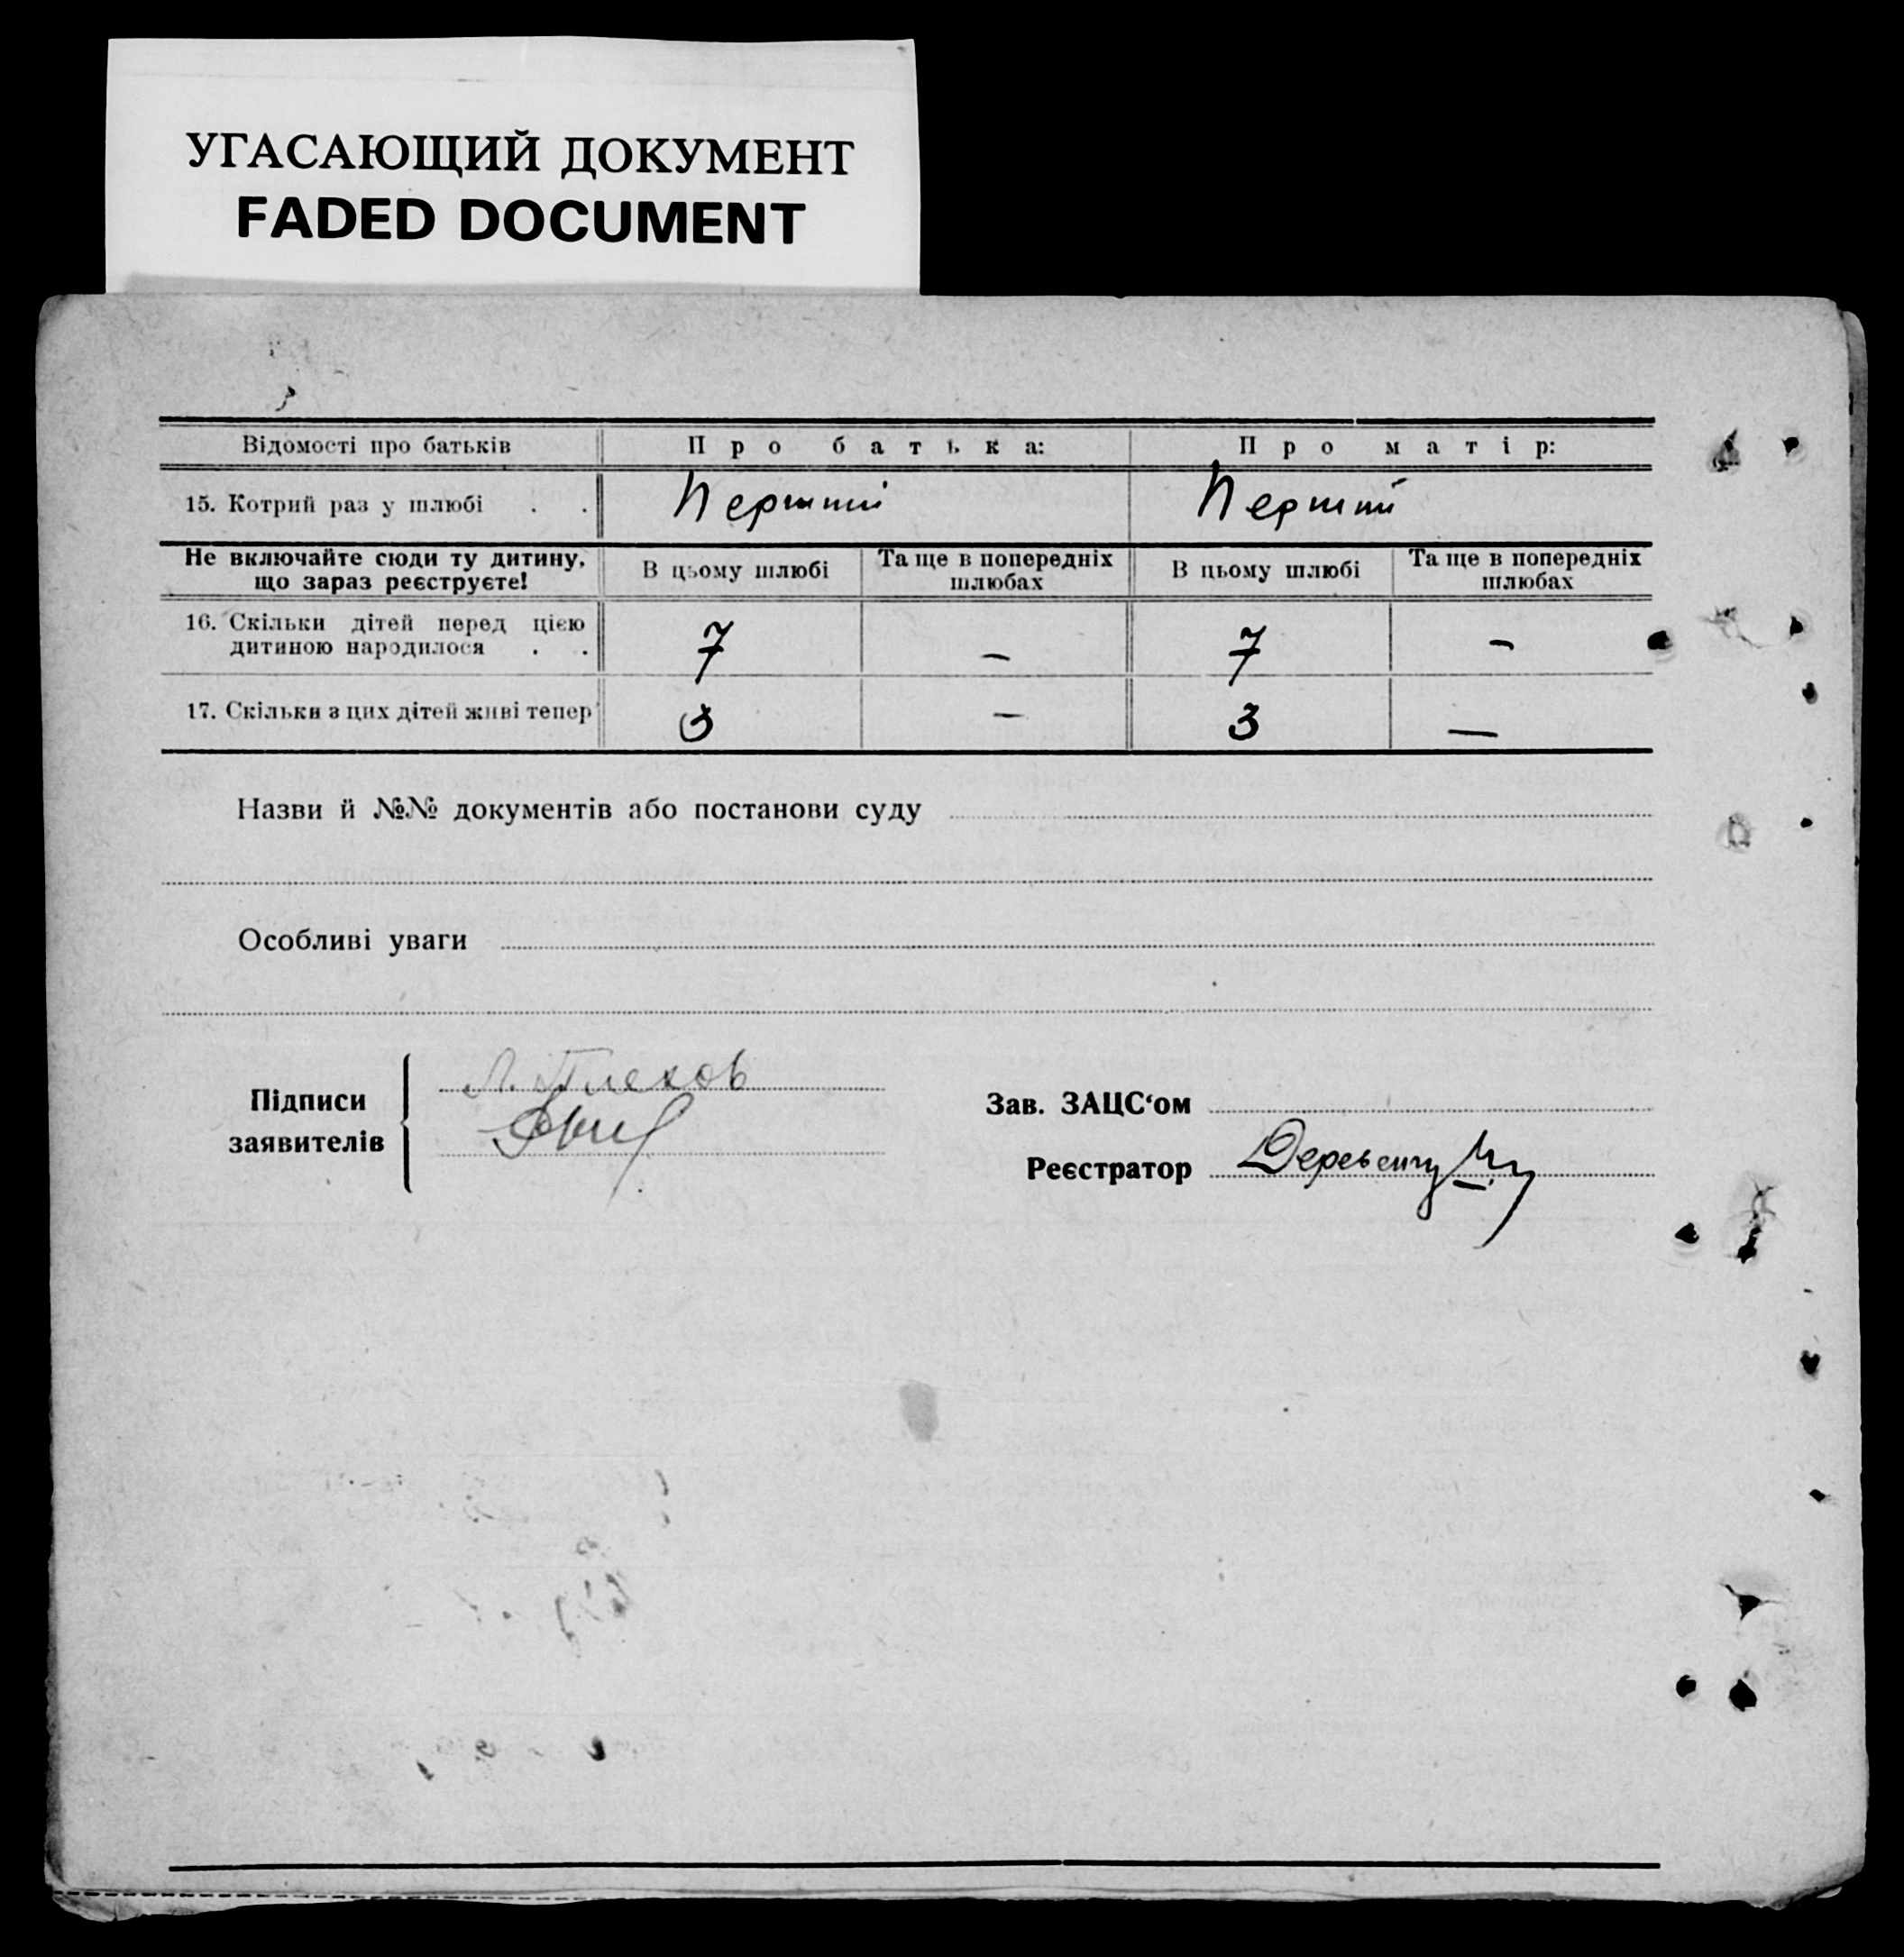 УГАСАЮЩИЙ ДОКУМЕНТ
FADED DOCUMENT
Відомості про батьків Про батька: Про матір:
15. Котрий раз у шлюбі . . Перший Перший
Не включайте сюди ту дитину, що зараз реєструєте! В цьому шлюбі Та ще в попередніх шлюбах В цьому шлюбі Та ще в попередніх шлюбах
16. Скільки дітей перед цією
дитиною народилося . . 7 — 7 —
17. Скільки з цих дітей живі тепер 3 — 3 —
Назви й №№ документів або постанови суду
Особливі уваги
Підписи
заявителів
Зав. ЗАЦС‘ом
Реєстратор